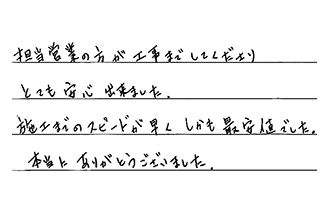 担当営業の方が工事までしてくださり
とても安心出来ました。
施工までのスピードが早くしかも最安値でした。
本当にありがとうございました。